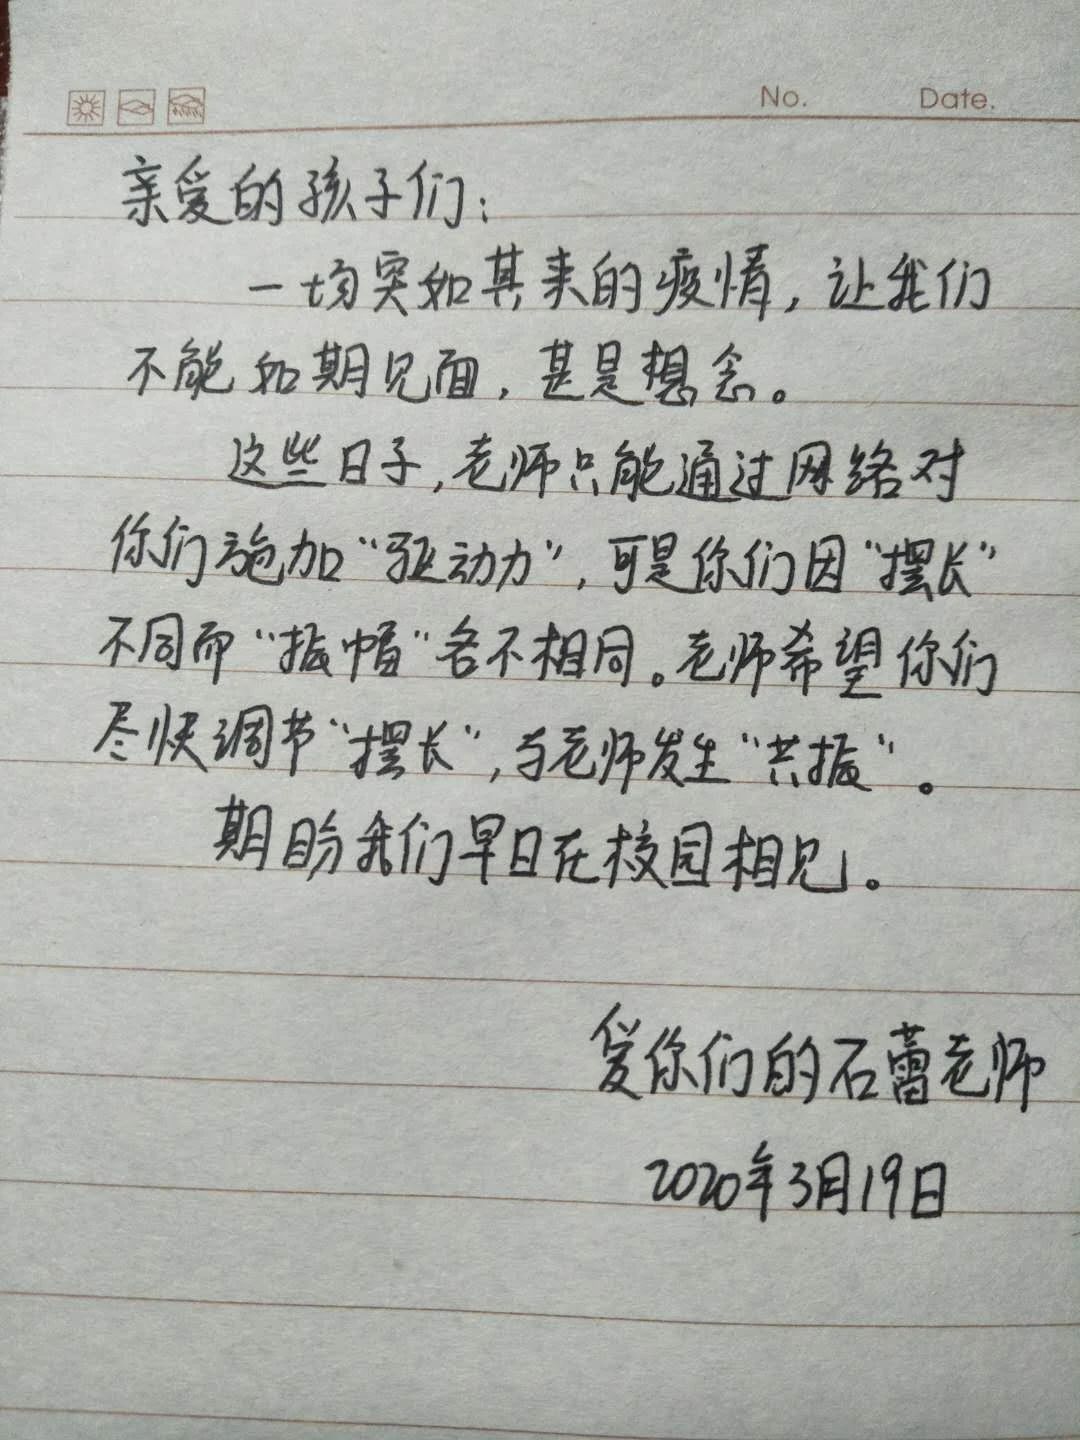 No. Date.
亲爱的孩子们:
一场突如其来的疫情,让我们
不能如期见面,甚是想念。
这些日子,老师只能通过网络对
你们施加“驱动力”,可是你们因“摆长”
不同而“振幅”各不相同。老师希望你们
尽快调节“摆长”,与老师发生“共振”。
期盼我们早日在校园相见。
爱你们的石蕾老师
2020年3月19日